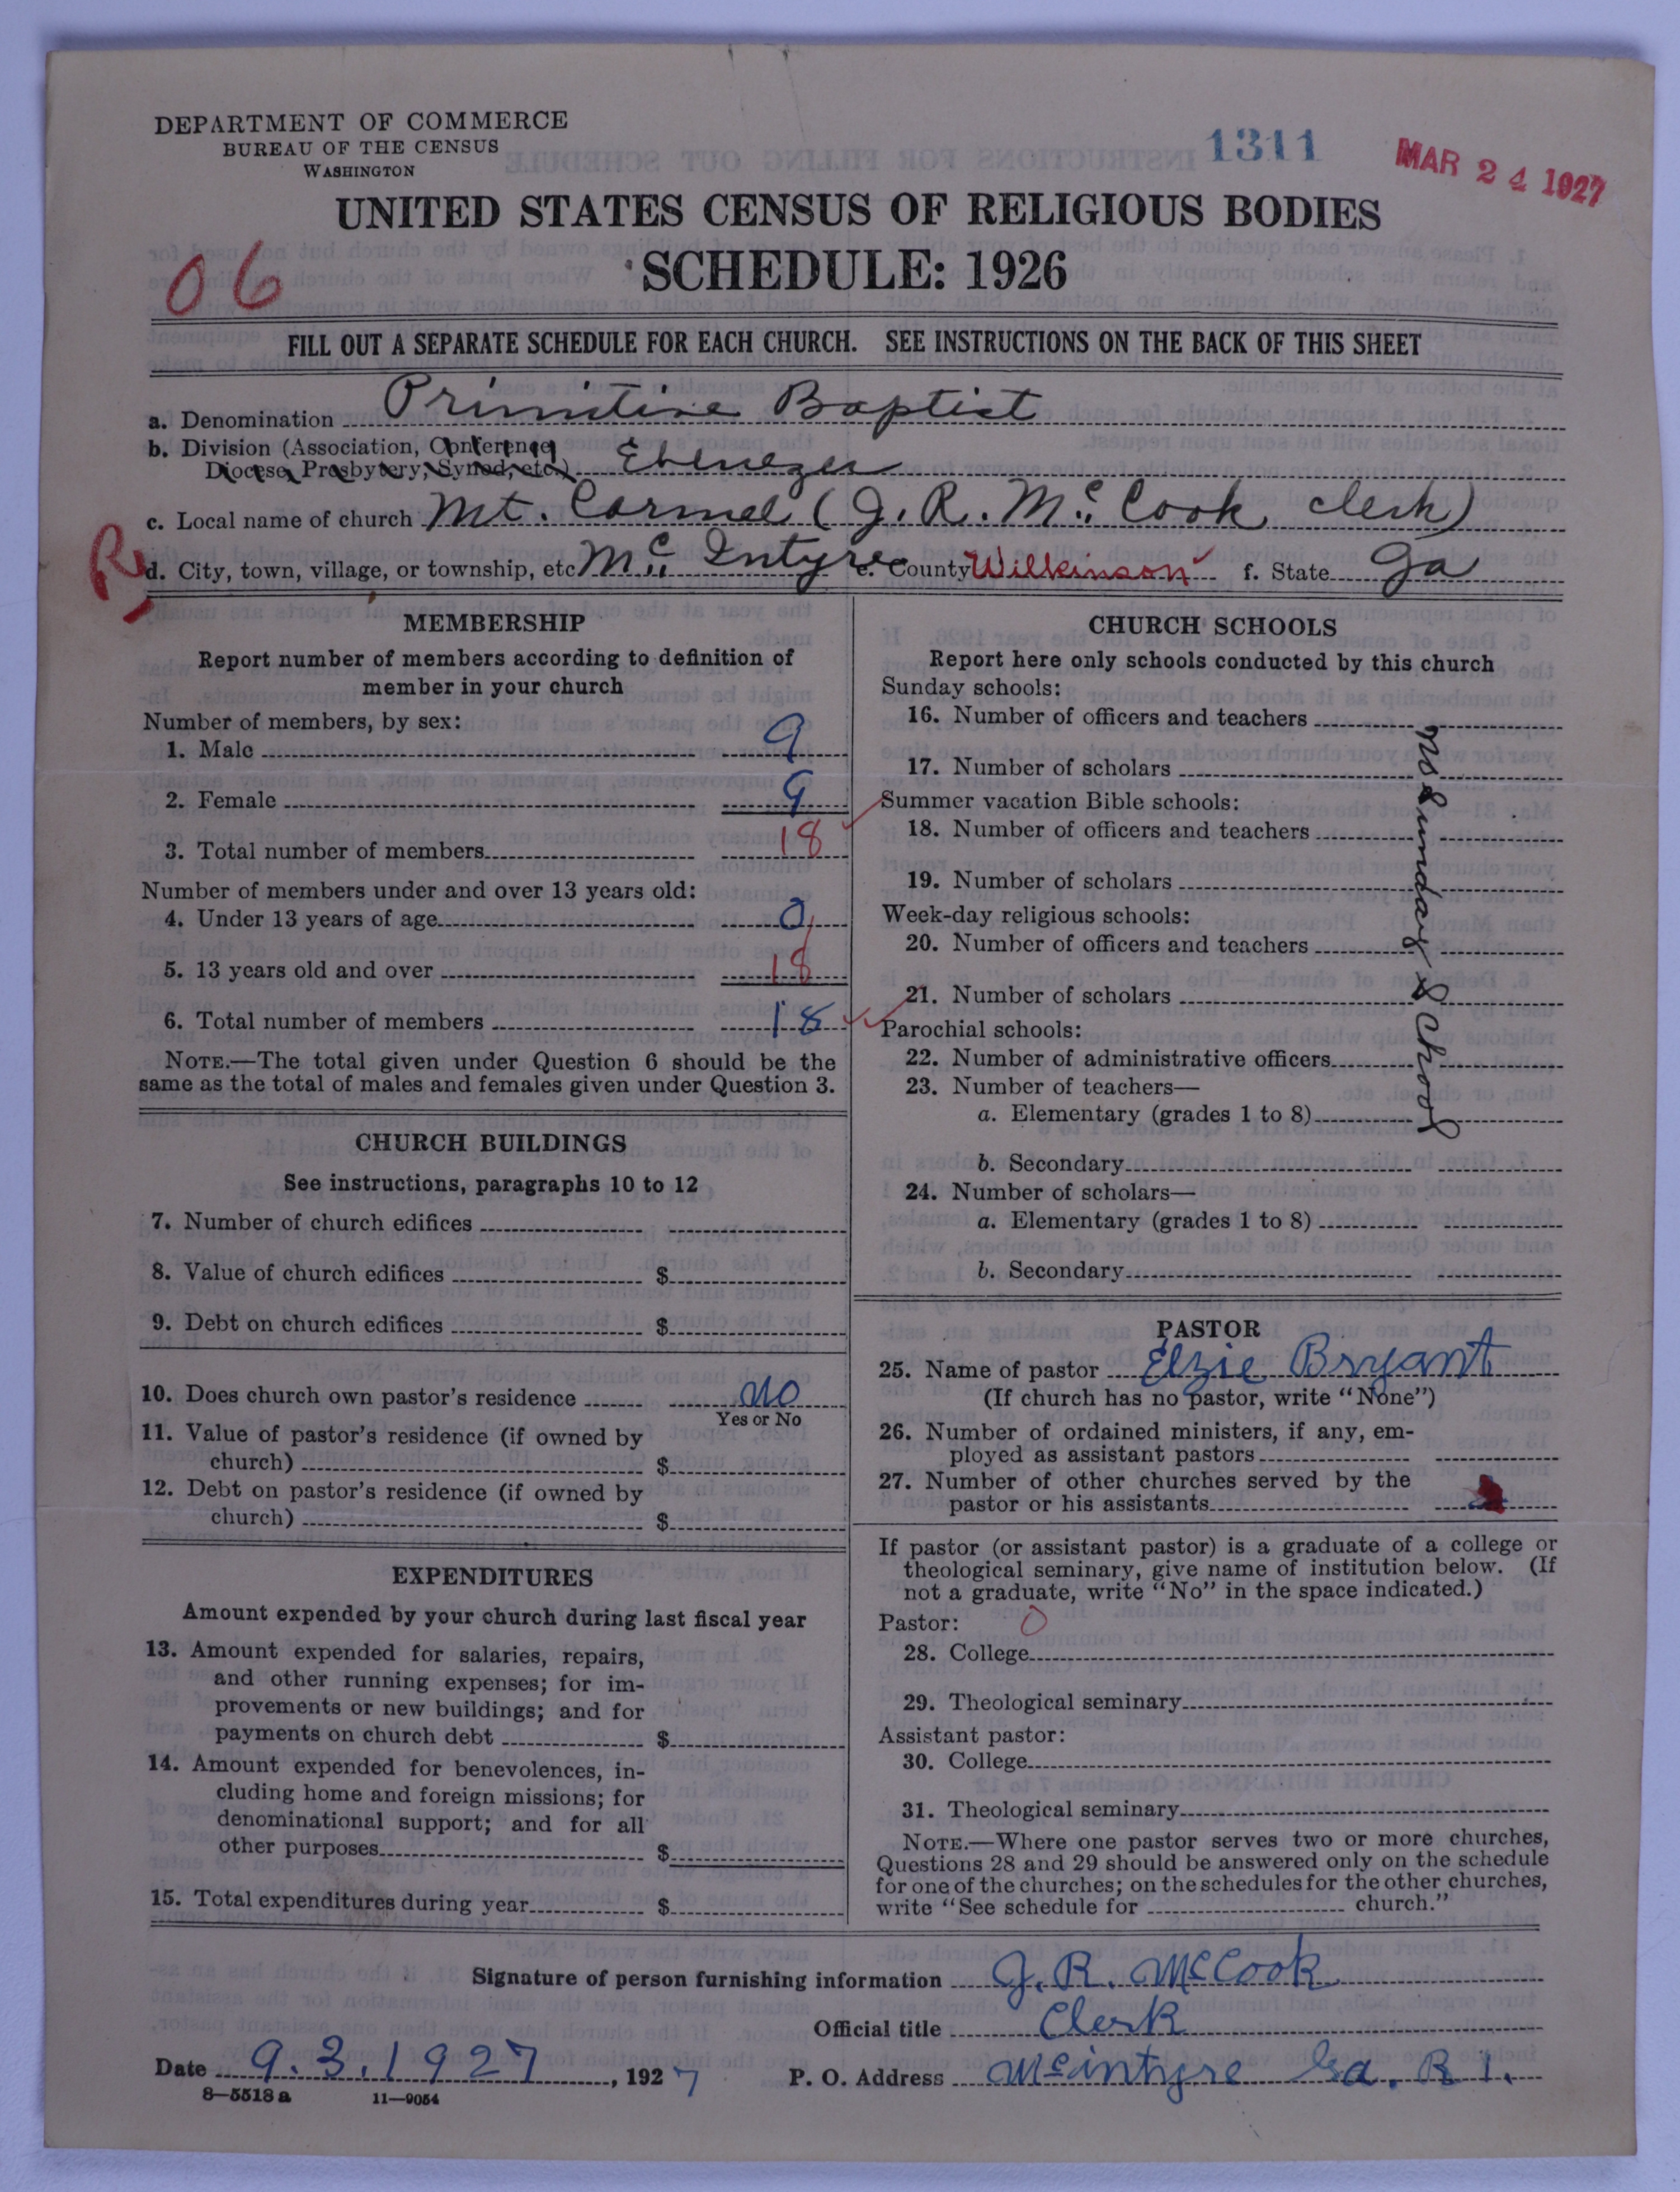 DEPARTMENT OF COMMERCE
BUREAU OF THE CENSUS
WASHINGTON
1311
MAR 24 1927
UNITED STATES CENSUS OF RELIGIOUS BODIES
SCHEDULE: 1926
06
FILL OUT A SEPARATE SCHEDULE FOR EACH CHURCH. SEE INSTRUCTIONS ON THE BACK OF THIS SHEET
a. Denomination Primitive Baptist
b. Division (Association, Conference,
Diocese, Presbytery, Synod, etc.) Ebenezer
c. Local name of church Mt. Carmel (J. R. Mc. Cook clerk)
R
d. City, town, village, or township, etc Mc. Intyre e. County Wilkinson f. State Ga
MEMBERSHIP
Report number of members according to definition of
member in your church
Number of members, by sex:
1. Male 9
2. Female 9
3. Total number of members 18
Number of members under and over 13 years old:
4. Under 13 years of age 0
5. 13 years old and over 18
6. Total number of members 18
NOTE.—The total given under Question 6 should be the
same as the total of males and females given under Question 3.
CHURCH BUILDINGS
See instructions, paragraphs 10 to 12
7. Number of church edifices
8. Value of church edifices $
9. Debt on church edifices $
10. Does church own pastor's residence no
Yes or No
11. Value of pastor's residence (if owned by
church) $
12. Debt on pastor's residence (if owned by
church) $
EXPENDITURES
Amount expended by your church during last fiscal year
13. Amount expended for salaries, repairs,
and other running expenses; for im-
provements or new buildings; and for
payments on church debt $
14. Amount expended for benevolences, in-
cluding home and foreign missions; for
denominational support; and for all
other purposes $
15. Total expenditures during year $
CHURCH SCHOOLS
Report here only schools conducted by this church
Sunday schools:
16. Number of officers and teachers
17. Number of scholars
Summer vacation Bible schools:
18. Number of officers and teachers
19. Number of scholars
Week-day religious schools:
20. Number of officers and teachers
21. Number of scholars
Parochial schools:
22. Number of administrative officers
23. Number of teachers—
a. Elementary (grades 1 to 8)
b. Secondary
24. Number of scholars—
a. Elementary (grades 1 to 8)
b. Secondary
no Sunday School
PASTOR
25. Name of pastor Elzie Bryant
(If church has no pastor, write "None")
26. Number of ordained ministers, if any, em-
ployed as assistant pastors
27. Number of other churches served by the
pastor or his assistants
If pastor (or assistant pastor) is a graduate of a college or
theological seminary, give name of institution below. (If
not a graduate, write "No" in the space indicated.)
Pastor: 0
28. College
29. Theological seminary
Assistant pastor:
30. College
31. Theological seminary
NOTE.—Where one pastor serves two or more churches,
Questions 28 and 29 should be answered only on the schedule
for one of the churches; on the schedules for the other churches,
write "See schedule for church."
Signature of person furnishing information J. R. McCook
Official title Clerk
Date 9. 3. 1927, 1927 P. O. Address Mcintyre Ga. R 1.
8—5518 a 11—9054